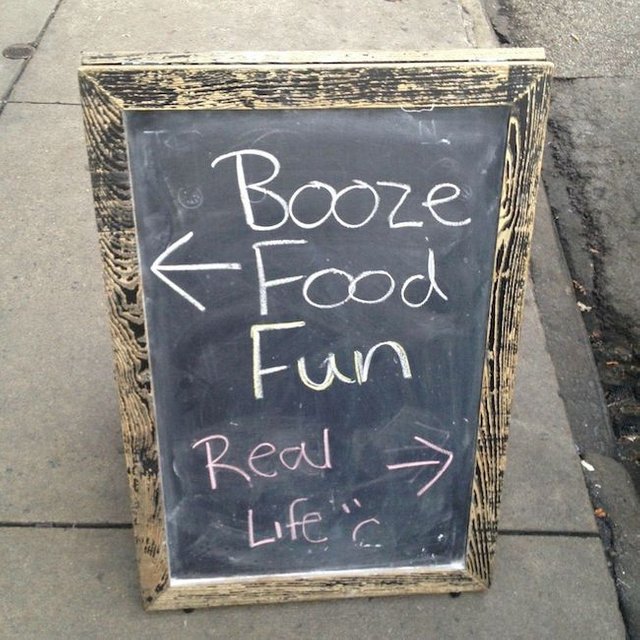 Booze
← Food
Fun
Real →
Life :C